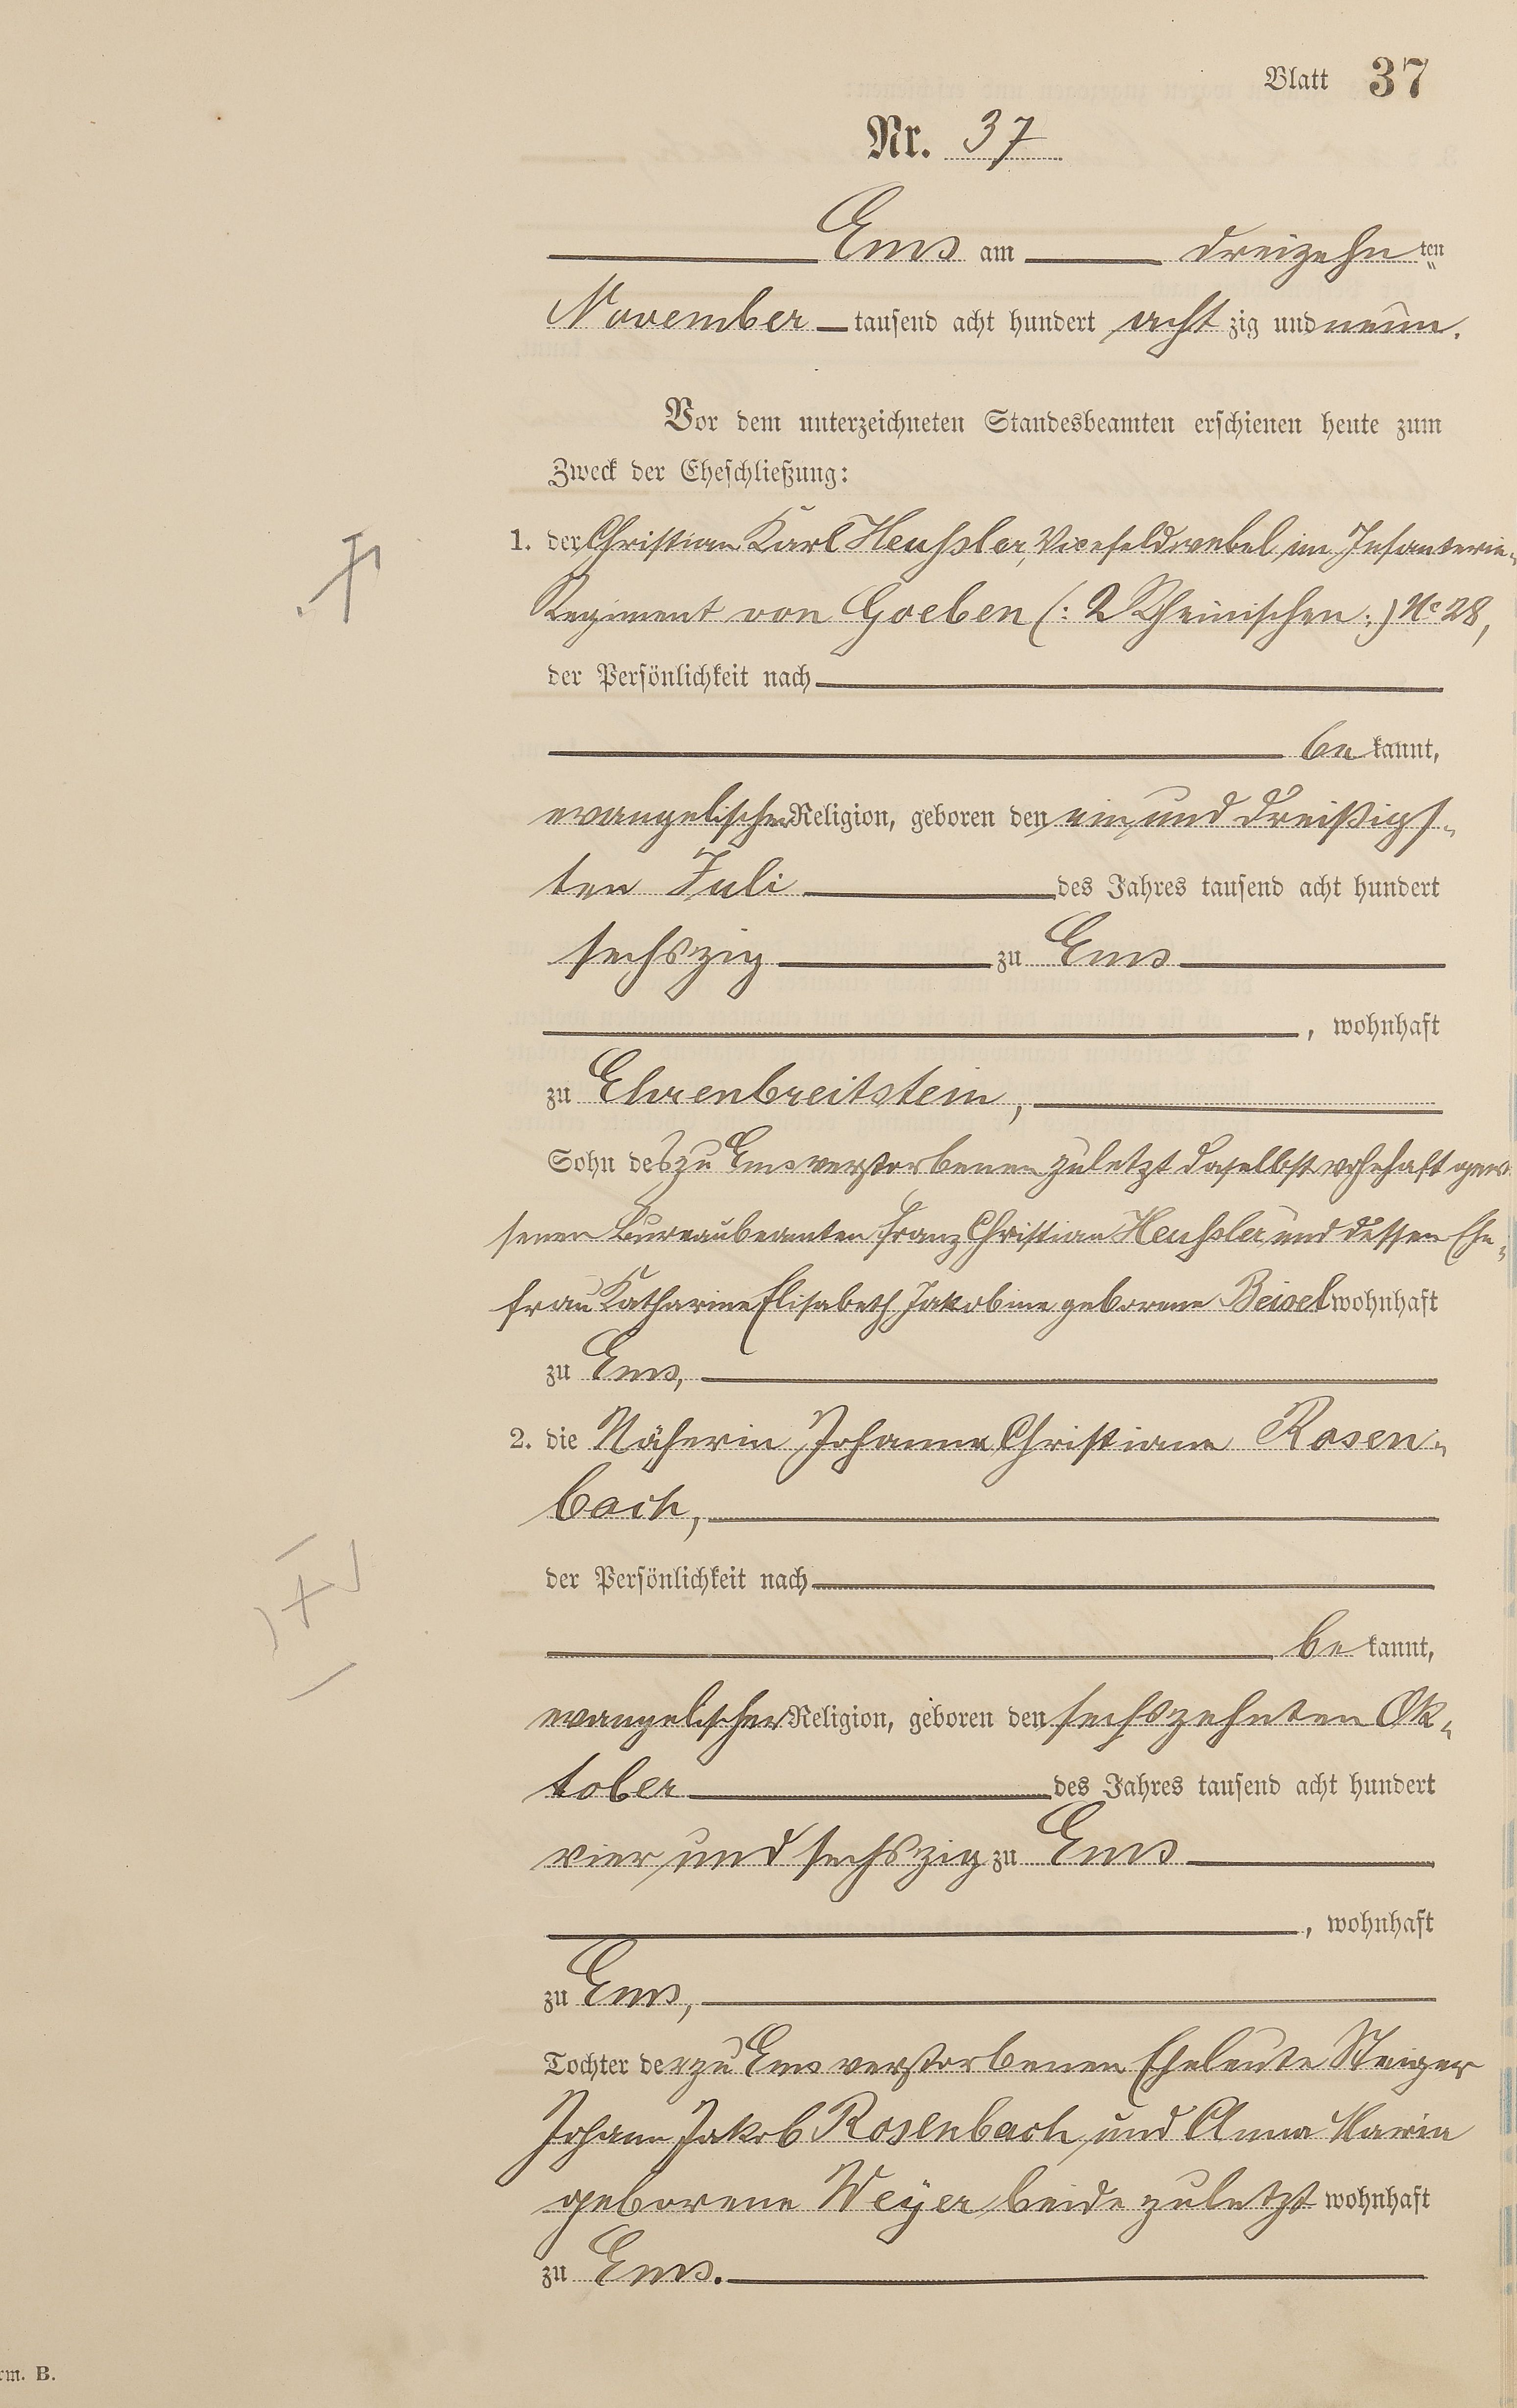 Blatt 37
Nr. 37
Ems am dreizehn ten
November tausend acht hundert acht zig und neun.
Vor dem unterzeichneten Standesbeamten erschienen heute zum
Zweck der Eheschließung:
1. der Christian Karl Heuhsler, Vicefeldwebel im Infanterie-
Regiment von Goeben (: 2 Rheinischen :) No 28,
der Persönlichkeit nach
be kannt,
evangelischer Religion, geboren den ein und dreißigs-
ten Juli des Jahres tausend acht hundert
sechszig zu Ems
, wohnhaft
zu Ehrenbreitstein,
Sohn des zu Ems verstorbenen zuletzt daselbst wohnhaft gewe
senen Bureaubeamten Franz Christian Heuhsler und dessen Ehe-
frau Katharine Elisabeth Jakobine geborene Beisel wohnhaft
zu Ems,
2. die Näherin Johanna Christiane Rosen-
bach,
der Persönlichkeit nach
be kannt,
evangelischer Religion, geboren den sechszehnten Ok-
tober des Jahres tausend acht hundert
vier und sechszig zu Ems
, wohnhaft
zu Ems,
Tochter der zu Ems verstorbenen Eheleute Steiger
Johann Jakob Rosenbach und Anna Maria
geborene Weyer beide zuletzt wohnhaft
zu Ems.
rm. B.